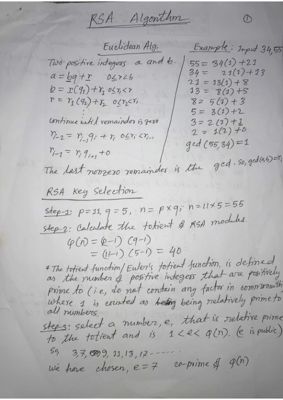 RSA Algorithm
①
Euclidean Alg.
Two positive integers a and b.
a = bq + r 0≤r<b
b = r(q₁) + r₁ 0≤r₁<r
r = r₁(q₂) + r₂ 0≤r₂<r₁
continue until remainder is zero
rₙ₋₂ = rₙ₋₁qₙ + rₙ 0≤rₙ<rₙ₋₁
rₙ₋₁ = rₙqₙ₊₁ + 0
Example: Input 34,55
55 = 34(1) + 21
34 = 21(1) + 13
21 = 13(1) + 8
13 = 8(1) + 5
8 = 5(1) + 3
5 = 3(1) + 2
3 = 2(1) + 1
2 = 1(2) + 0
gcd(55,34) = 1
The last nonzero remainder is the gcd. So, gcd(a,b) = rₙ
RSA Key Selection
Step-1: p=11, q=5, n = p×q; n=11×5=55
Step-2: Calculate the totient of RSA modulus.
φ(n) = (p-1) (q-1)
= (11-1) (5-1) = 40
* The totient function/Euler's totient function, is defined
as the number of positive integers that are positively
prime to (i.e, do not contain any factor in common with)
where 1 is counted as being relatively prime to
all numbers.
Step-3: Select a number, e, that is relative prime
to the totient and is 1<e<φ(n). (e is public)
So 3,7, 9, 11, 13, 17
We have chosen, e=7 co-prime of φ(n)